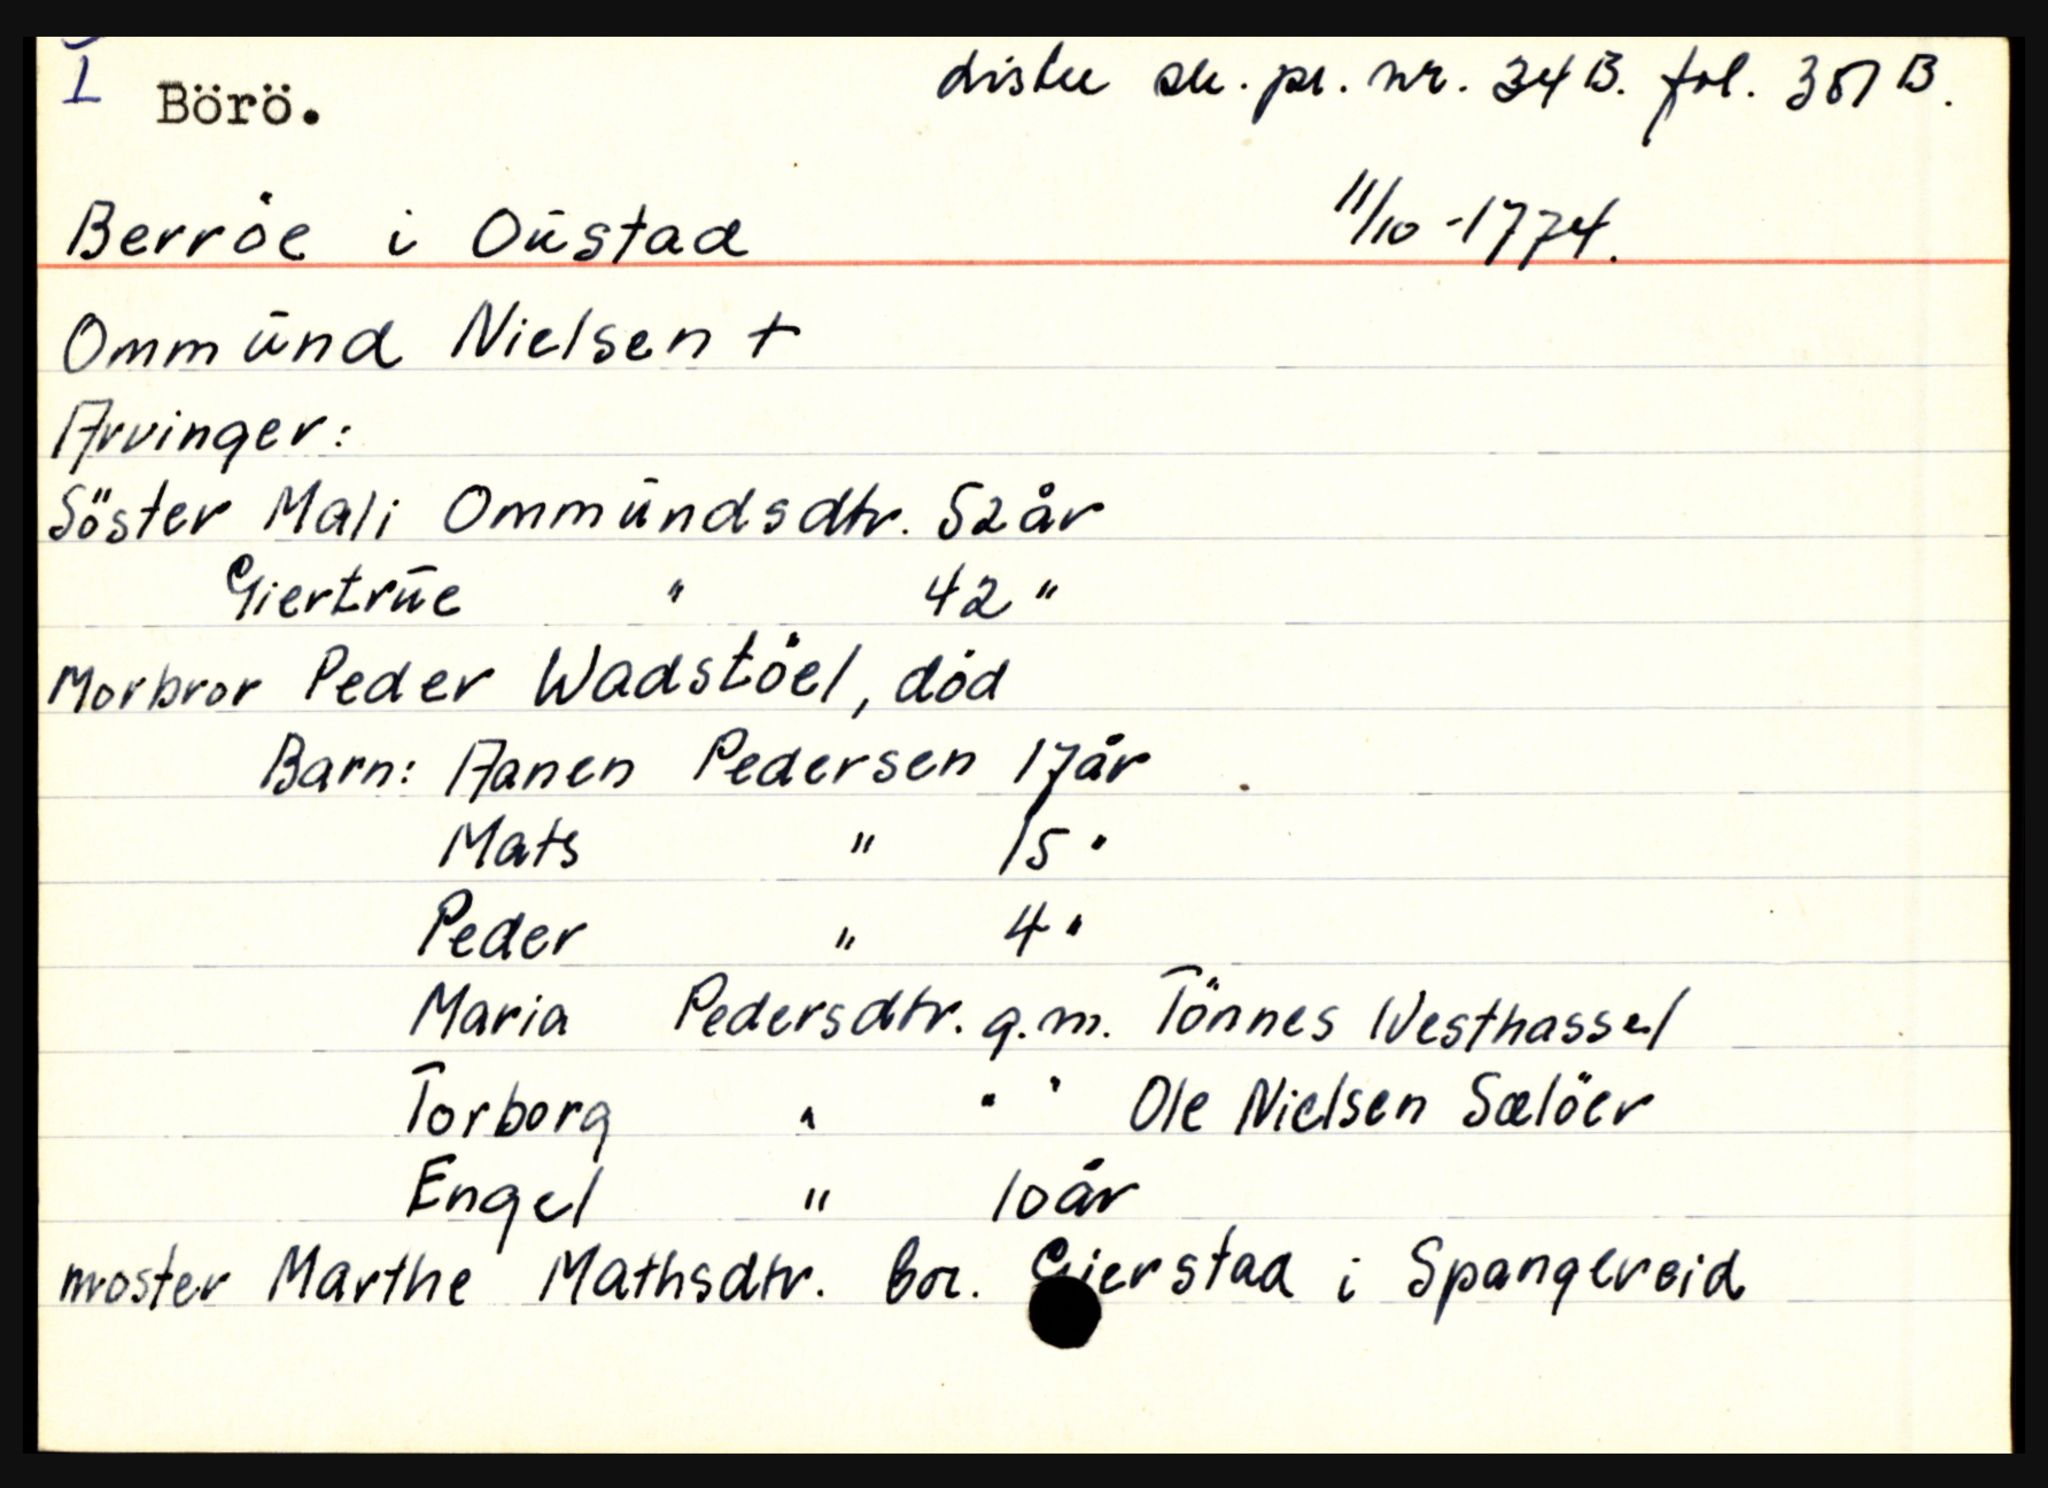 I Börö. Lister sk. pr. nr. 34 B. fol. 381 B.
Berröe i Oustad 11/10 -1774.
Ommund Nielsen +
Arvinger:
Söster Mali Ommundsdtr. 52 år
Giertrue " 42 "
Morbror Peder Wadstöel, död
Barn: Aanen Pedersen 17 år
Mats " 15 "
Peder " 4 "
Maria Pedersdtr. g.m. Tönnes Westhassel
Torborg " " " Ole Nielsen Sælöer
Engel " 10 år
moster Marthe Mathsdtr. bor. Gierstad i Spangereid